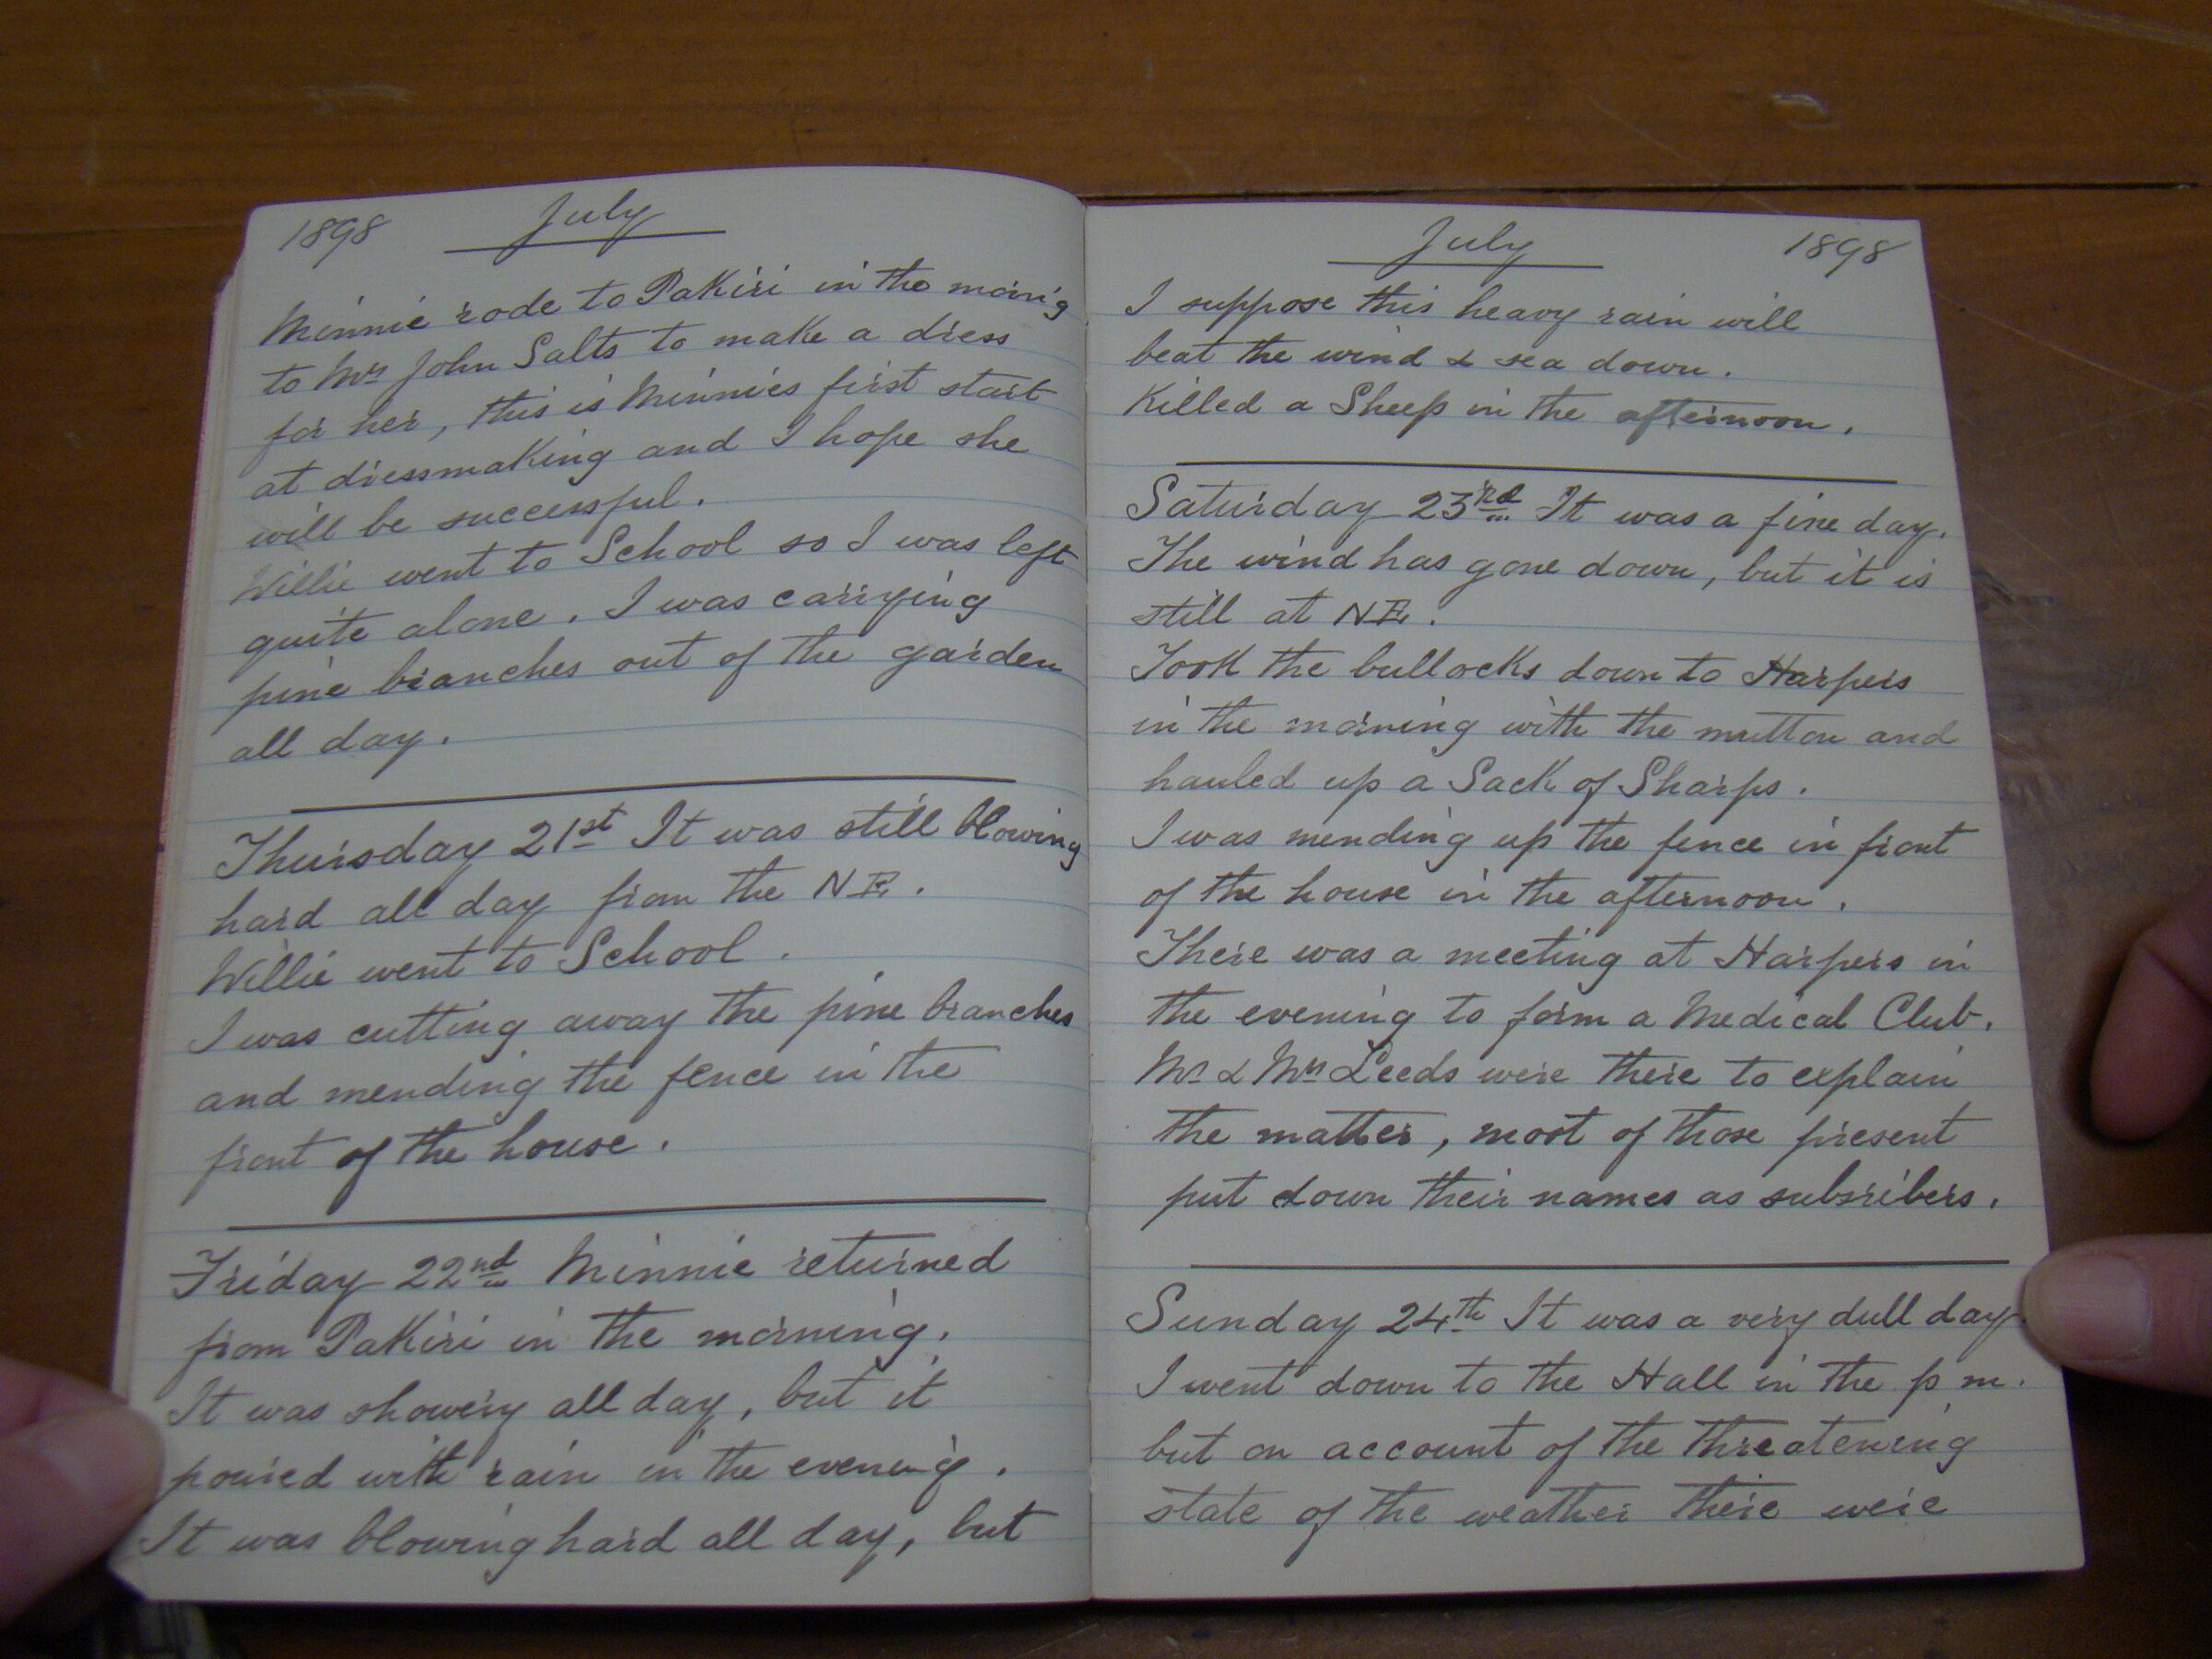 1898 July
Minnie rode to Pakiri in the mornig
to Mrs John Salts to make a dress
for her, this is Minnies first start
at dressmaking and I hope she
will be successful.
Willie went to School so I was left
quite alone. I was carrying
pine branches out of the garden
all day.
Thursday 21st It was still blowing
hard all day from the N E.
Willie went to School.
I was cutting away the pine branches
and mending the fence in the
front of the house.
Friday 22nd Minnie returned
from Pakiri in the morning.
It was showery all day, but it
poured with rain in the evening.
It was blowing hard all day, but
July 1898
I suppose this heavy rain will
beat the wind & sea down.
Killed a Sheep in the afternoon.
Saturday 23rd It was a fine day.
The wind has gone down, but it is
still at N E.
Took the bullocks down to Harpers
in the morning with the mutton and
hauled up a Sack of Sharps.
I was mending up the fence in front
of the house in the afternoon.
There was a meeting at Harpers in
the evening to form a Medical Club.
Mr & Mrs Leeds were there to explain
the matter, most of those present
put down their names as subsribers.
Sunday 24th It was a very dull day.
I went down to the Hall in the p m.
but on account of the threatening
state of the weather there were